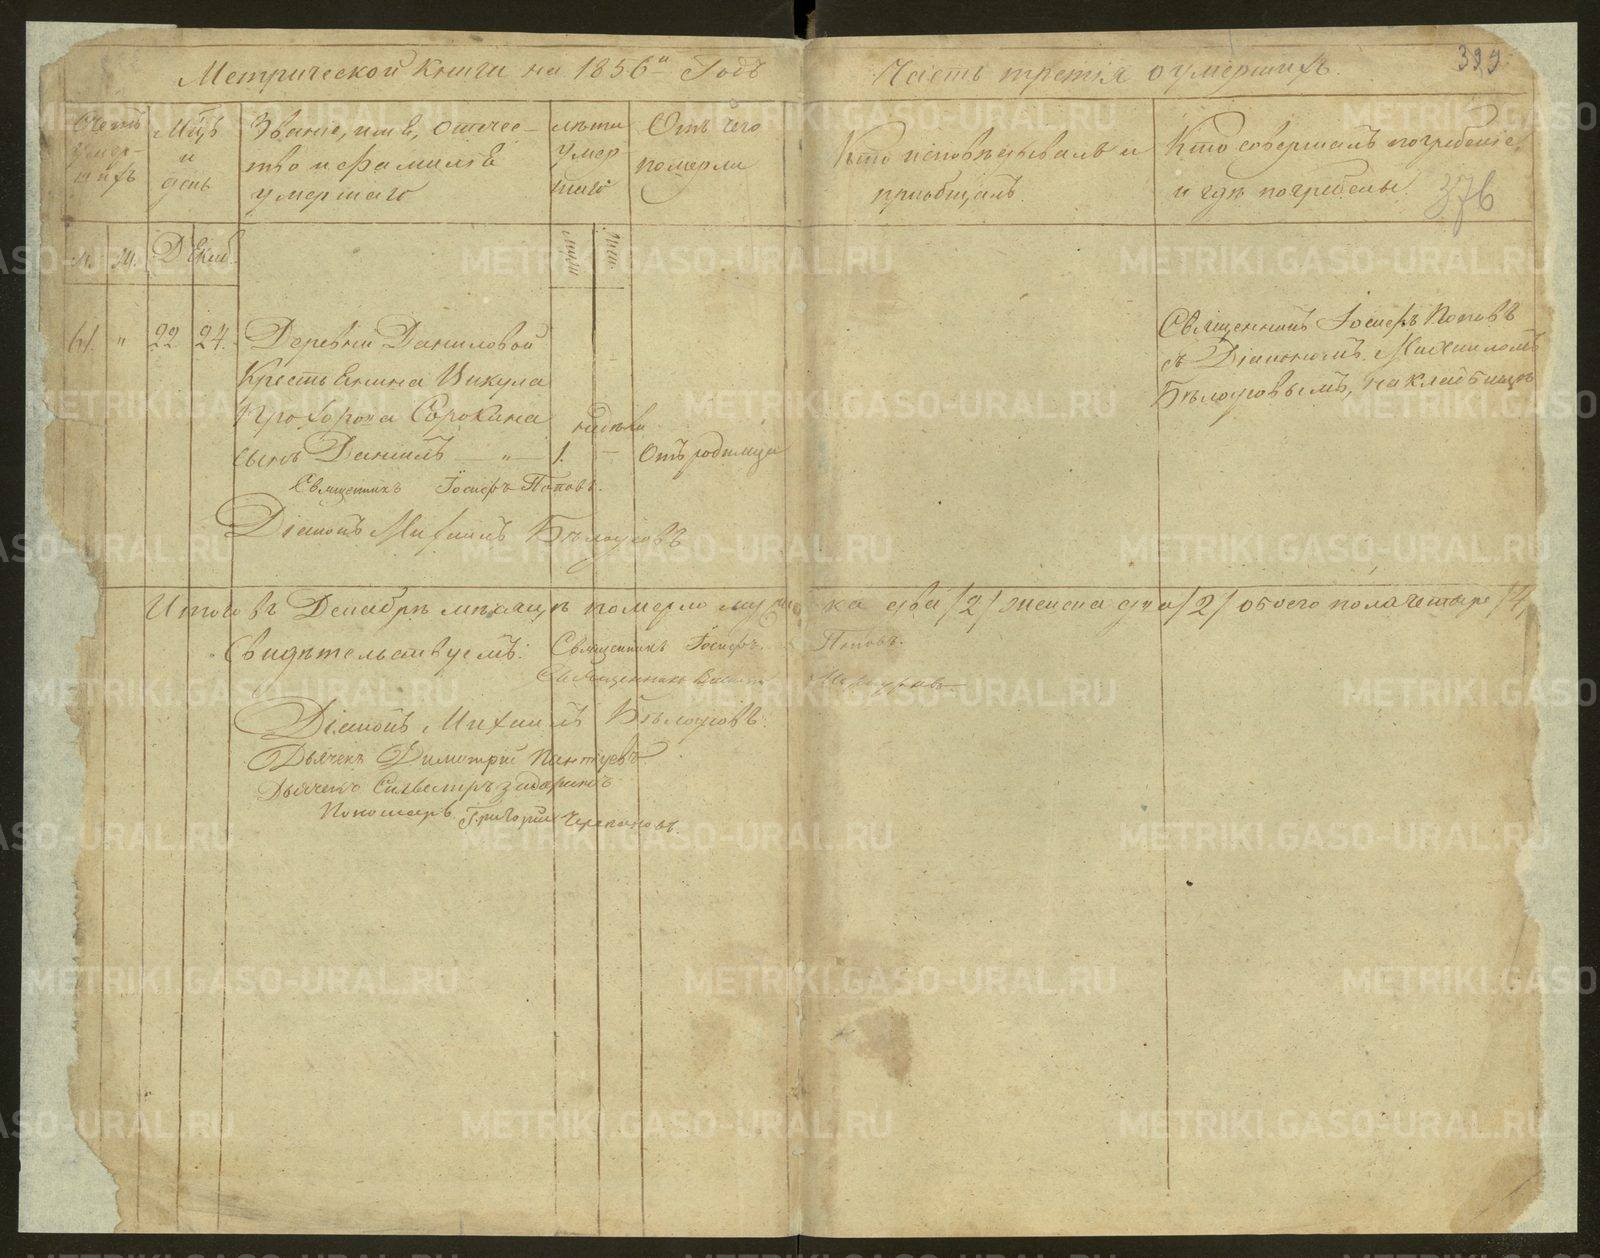 Метрической Книги на 1856й Годъ
Часть третія о умершихъ.
399
Счетъ умер- шихъ
Мцъ и день
Званіе, имя, отчес-
тво и Фамилія
умершаго
лѣта умер шаго
Отъ чего
померли
Кто исповѣдывалъ и
пріобщалъ.
Кто совершалъ погребеніе,
и гдѣ погребены.
376
м. ж. Декаб.
муж. жен.
61. " 22 24. Деревни Даниловой
Крестьянина Викула
Прохорова Сорокина
сынъ Даніилъ — " — 1. недѣли — Отъ родимца
Священникъ Іосифъ Поповъ
съ Діакономъ Михаиломъ
Бѣлоусовымъ, на кладбищѣ
Священникъ Іосифъ Поповъ.
Діаконъ Михаилъ Бѣлоусовъ
Итого въ Декабрѣ мѣсяцѣ померло мужеска два /2/ женска два /2/ обоего пола четыре /4/
Свидѣтельствуемъ: Священникъ Іосифъ Поповъ.
Священникъ
Діаконъ Михаилъ Бѣлоусовъ
Дьячекъ Димитрій
Дьячекъ Сильвестръ
Пономарь Григорій Черепановъ.
METRIKI.GASO-URAL.RU